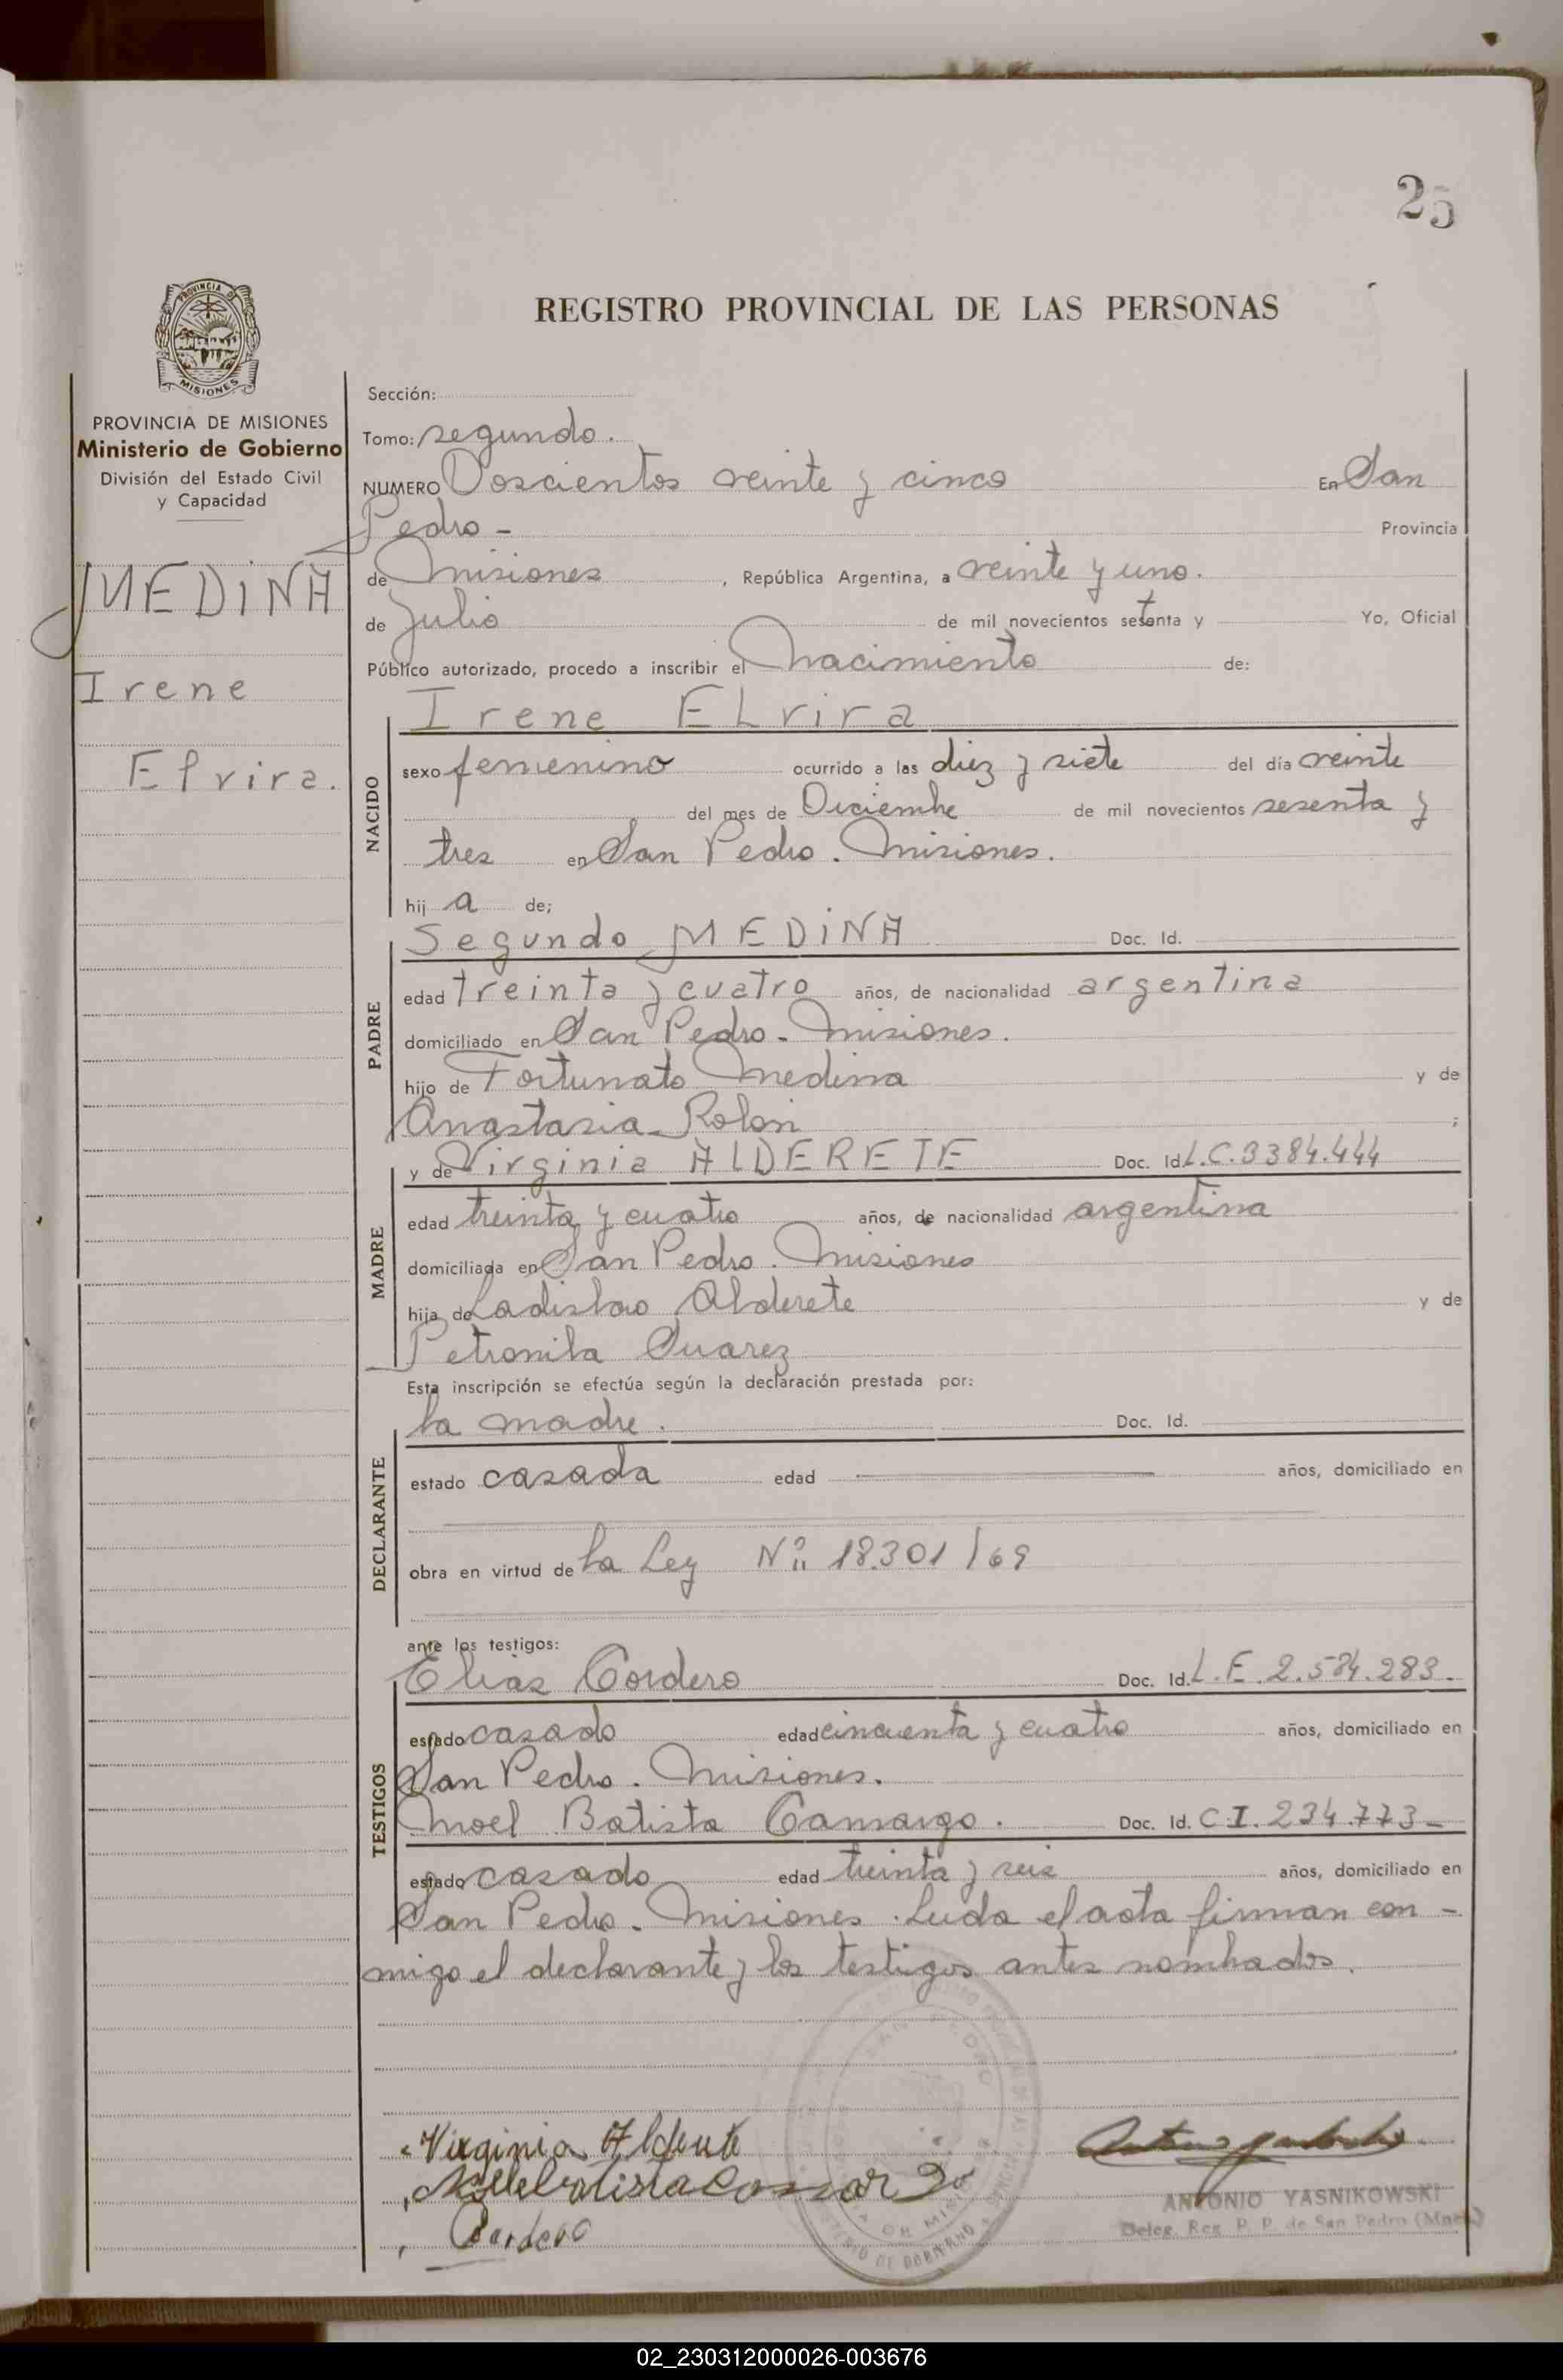 25
REGISTRO PROVINCIAL DE LAS PERSONAS
PROVINCIA DE
MISIONES
PROVINCIA DE MISIONES
Ministerio de Gobierno
División del Estado Civil
y Capacidad
MEDINA
Irene
Elvira.
Sección:
Tomo: segundo.
NUMERO Doscientos veinte y cinco En San
Pedro - Provincia
de Misiones , República Argentina, a veinte y uno.
de Julio de mil novecientos setenta y Yo, Oficial
Público autorizado, procedo a inscribir el Nacimiento de:
NACIDO
Irene ELvira
sexo femenino ocurrido a las diez y siete del día veinte
del mes de Diciembre de mil novecientos sesenta y
tres en San Pedro. Misiones.
hij a de;
PADRE
Segundo MEDINA Doc. Id.
edad treinta y cuatro años, de nacionalidad argentina
domiciliado en San Pedro - Misiones.
hijo de Fortunato Medina y de
Anastasia Rolon ;
MADRE
y de Virginia ALDERETE Doc. Id. L.C. 3384.444
edad treinta y cuatro años, de nacionalidad argentina
domiciliada en San Pedro. Misiones
hija de Ladislao Alderete y de
Petronila Suarez
Esta inscripción se efectúa según la declaración prestada por:
DECLARANTE
la madre. Doc. Id.
estado casada edad años, domiciliado en
obra en virtud de la Ley Nº 18.301/69
ante los testigos:
TESTIGOS
Elias Cordero Doc. Id. L.E. 2.584.283.
estado casado edad cincuenta y cuatro años, domiciliado en
San Pedro. Misiones.
Noel Batista Camargo. Doc. Id. C.I. 234.773-
estado casado edad treinta y seis años, domiciliado en
San Pedro. Misiones. Leida el acta firman con-
migo el declarante y los testigos antes nombrados.
Virginia Alderete
Cordero
ANTONIO YASNIKOWSKI
Deleg. Reg. P. P. de San Pedro (Mnes.)
02_230312000026-003676